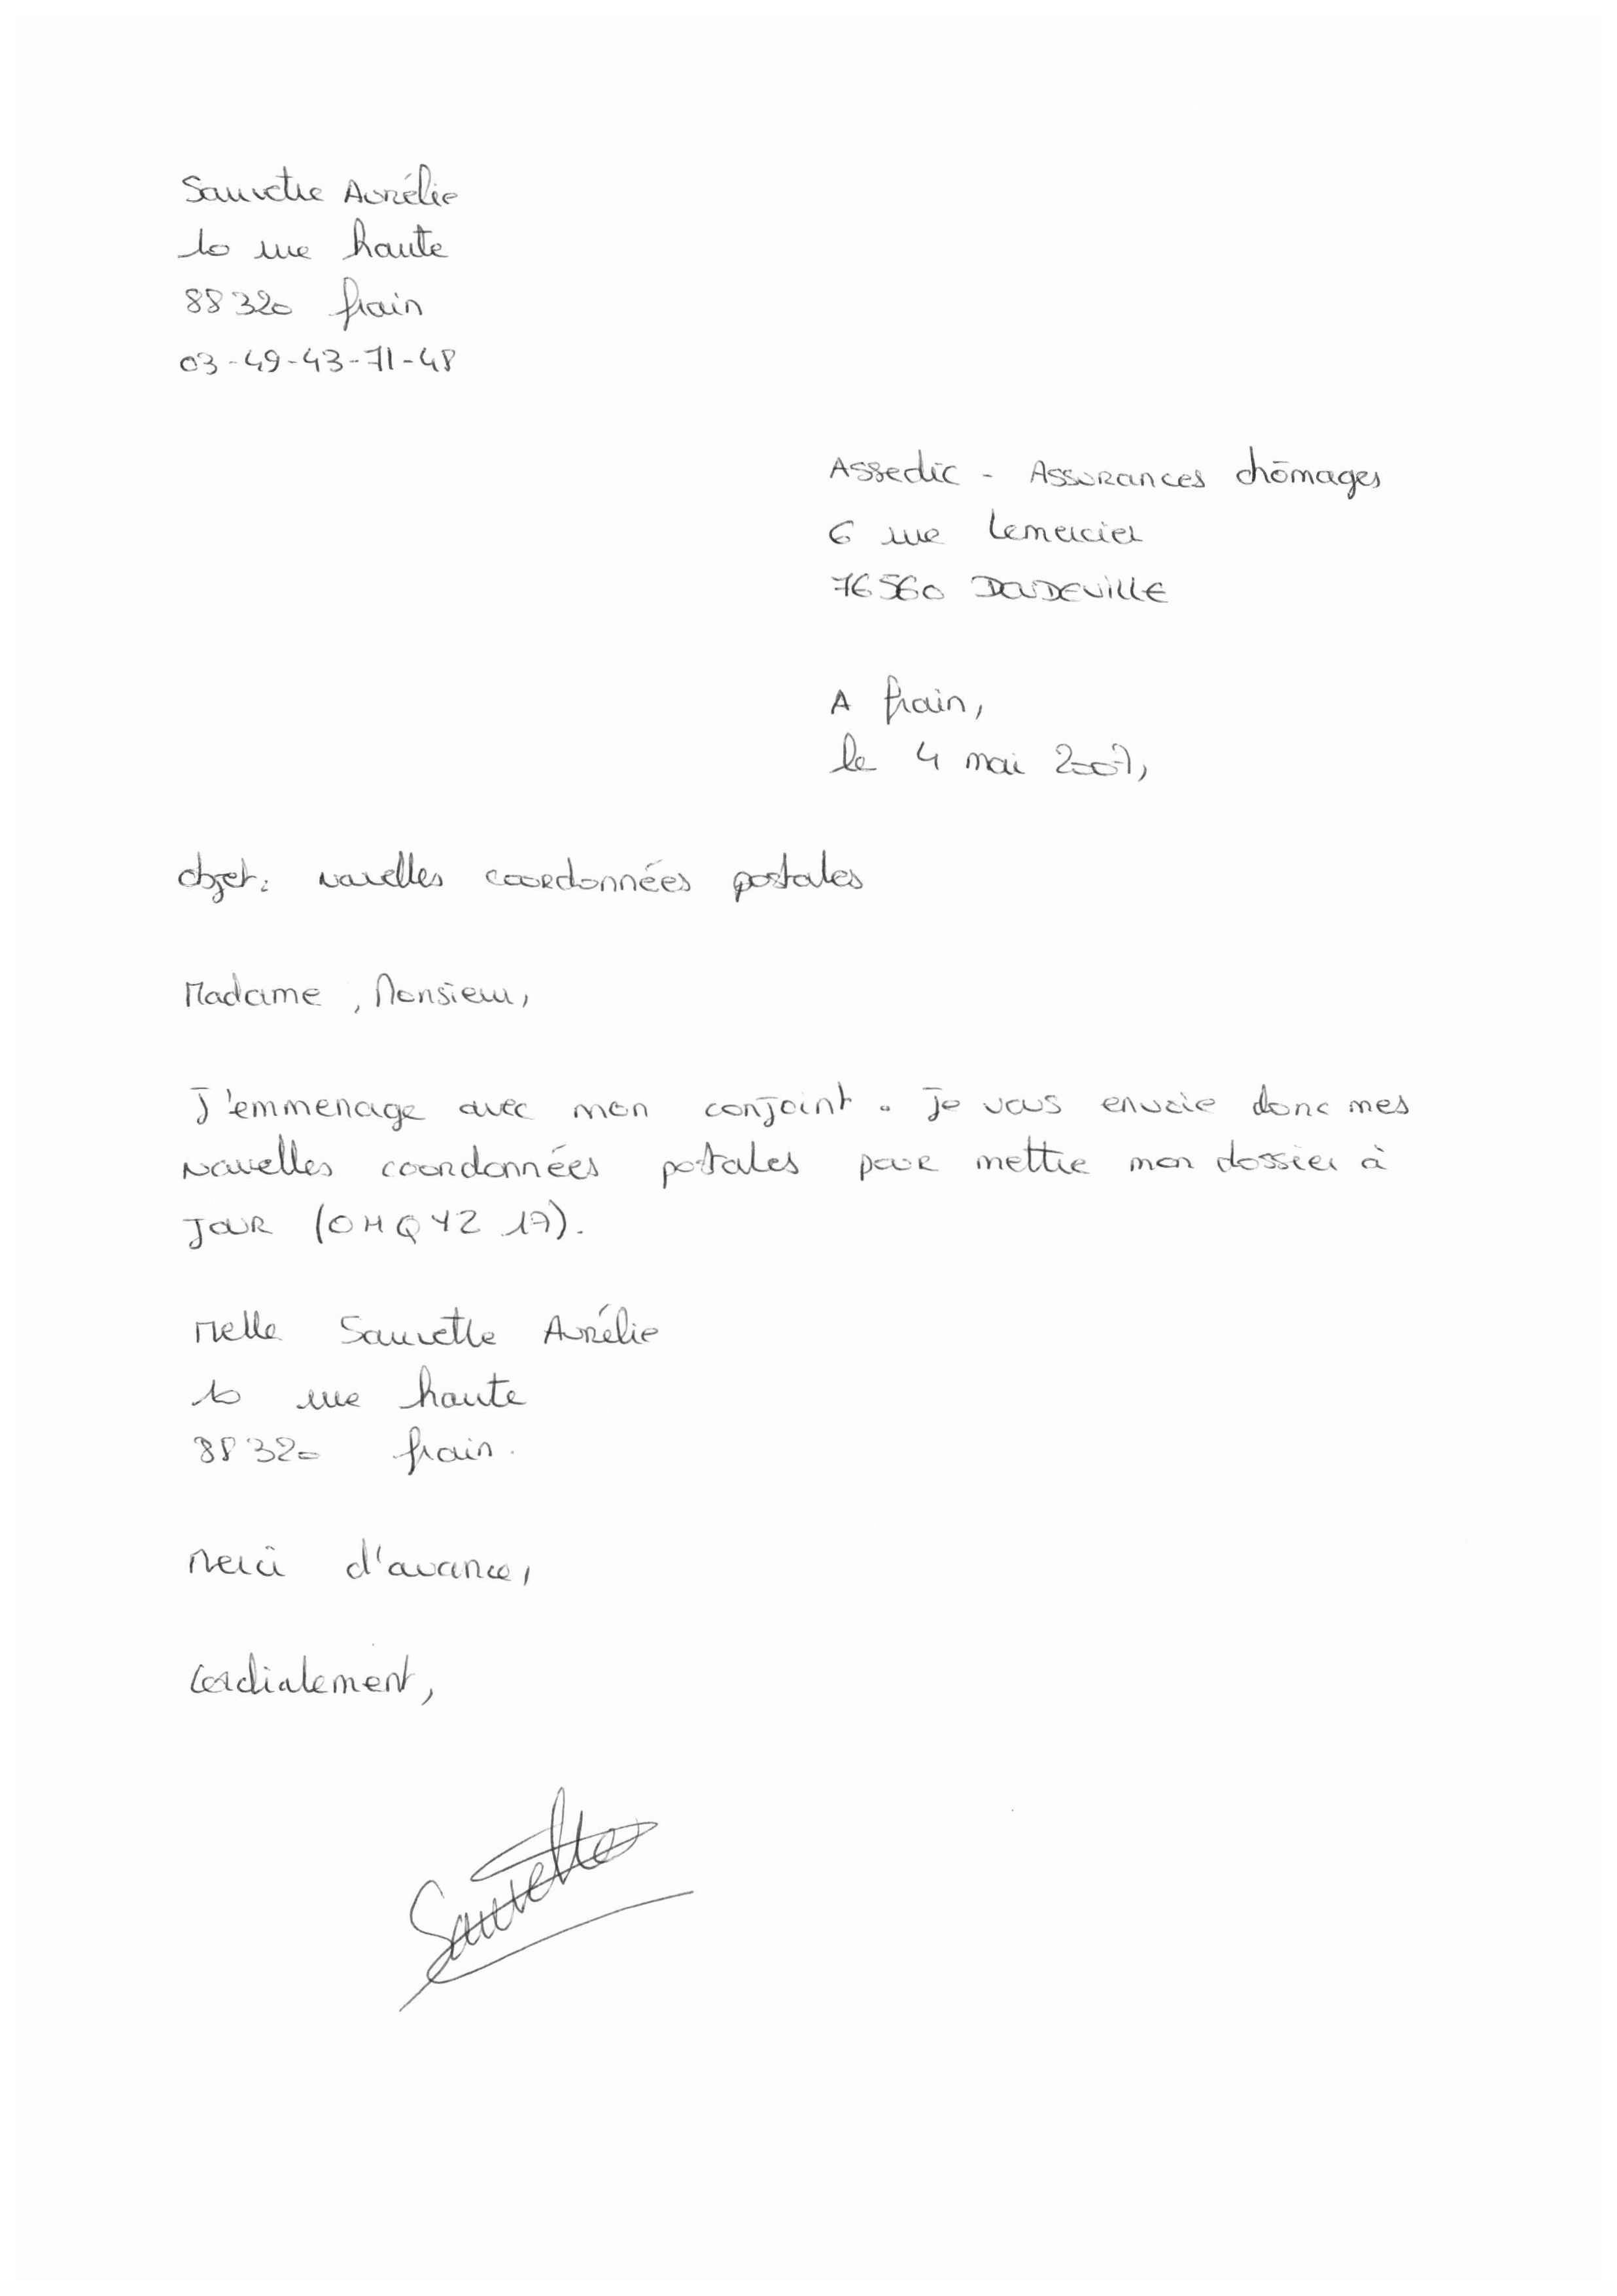 Sauvetre Aurélie
10 rue haute
88320 frain
03-49-43-71-48
Assedic - Assurances chômages
6 rue Lemercier
76560 DOUDEVILLE
A frain,
le 4 mai 2007,
objet: nouvelles coordonnées postales
Madame, Monsieur,
J'emmenage avec mon conjoint. Je vous envoie donc mes
nouvelles coordonnées postales pour mettre mon dossier à
JOUR (OHQYZ 17).
Melle Sauvetre Aurélie
10 rue haute
88320 frain.
Merci d'avance,
Cordialement,